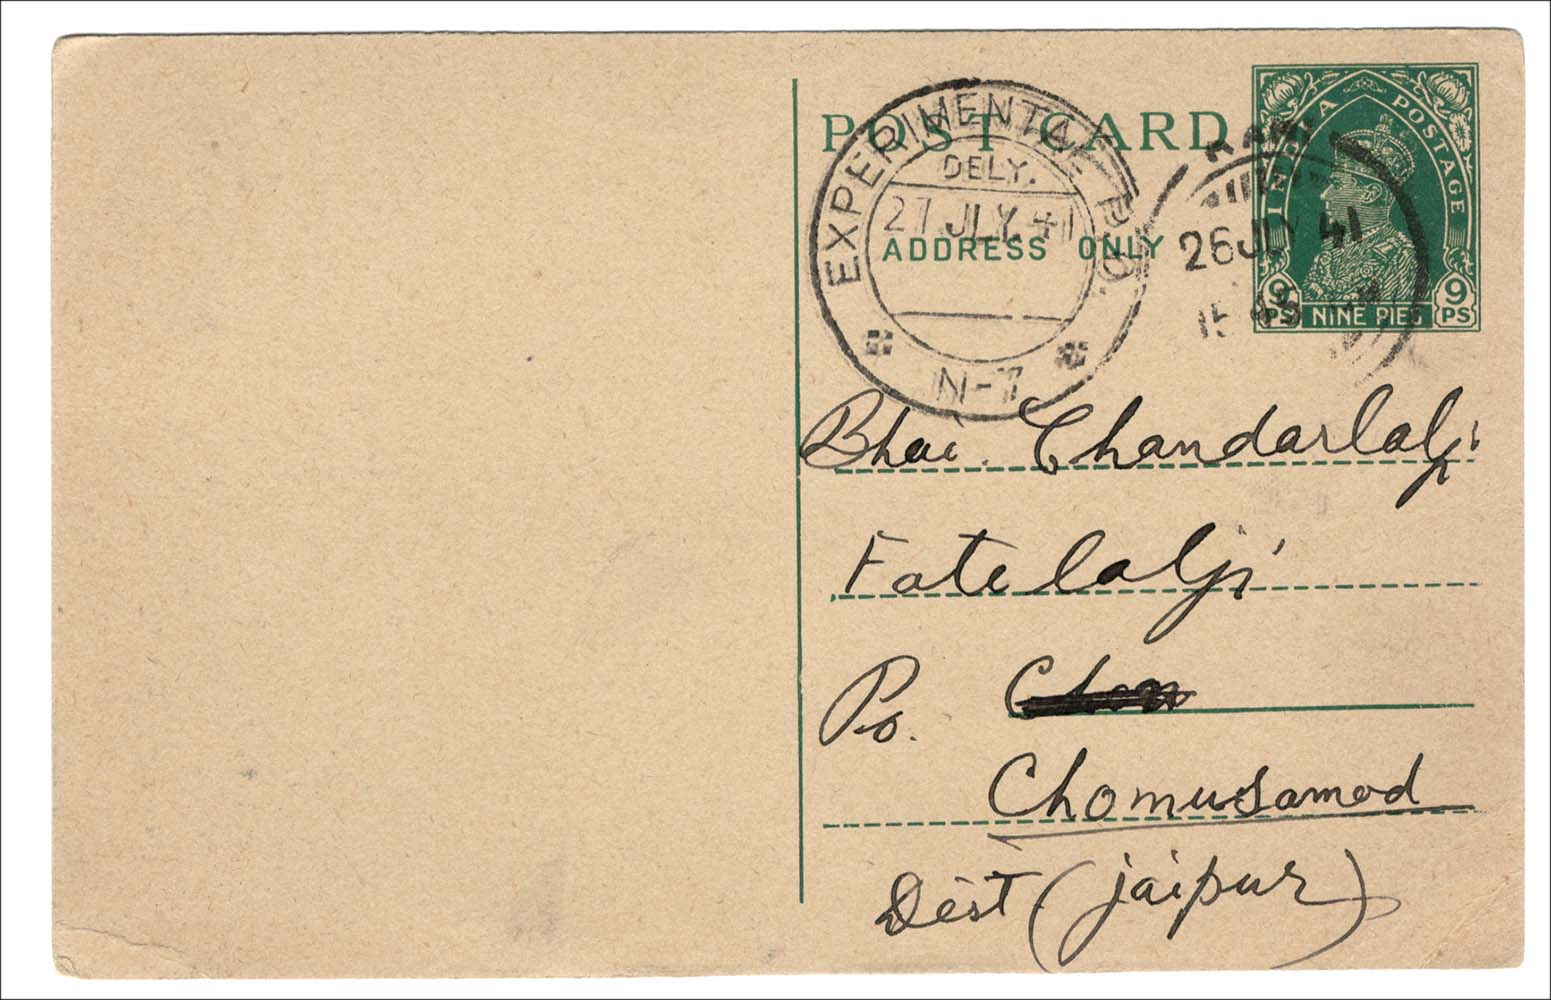 POST CARD
ADDRESS ONLY
EXPERIMENTAL P.O.
DELY.
27 JLY. 41
N-7
26 JU 41
15 45
INDIA POSTAGE
9 PS NINE PIES 9 PS
Bhai. Chandarlalji
Fatelalji
Po. Chom
Chomusamod
Dist (jaipur)